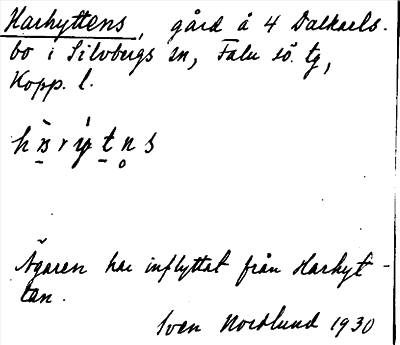 Harhyttens, gård å 4 Dalkarls-
bo i Silvbergs sn, Falu sö. tg,
Kopp. l.
Ägaren har inflyttat från Harhyt-
tan.
Sven Nordlund 1930